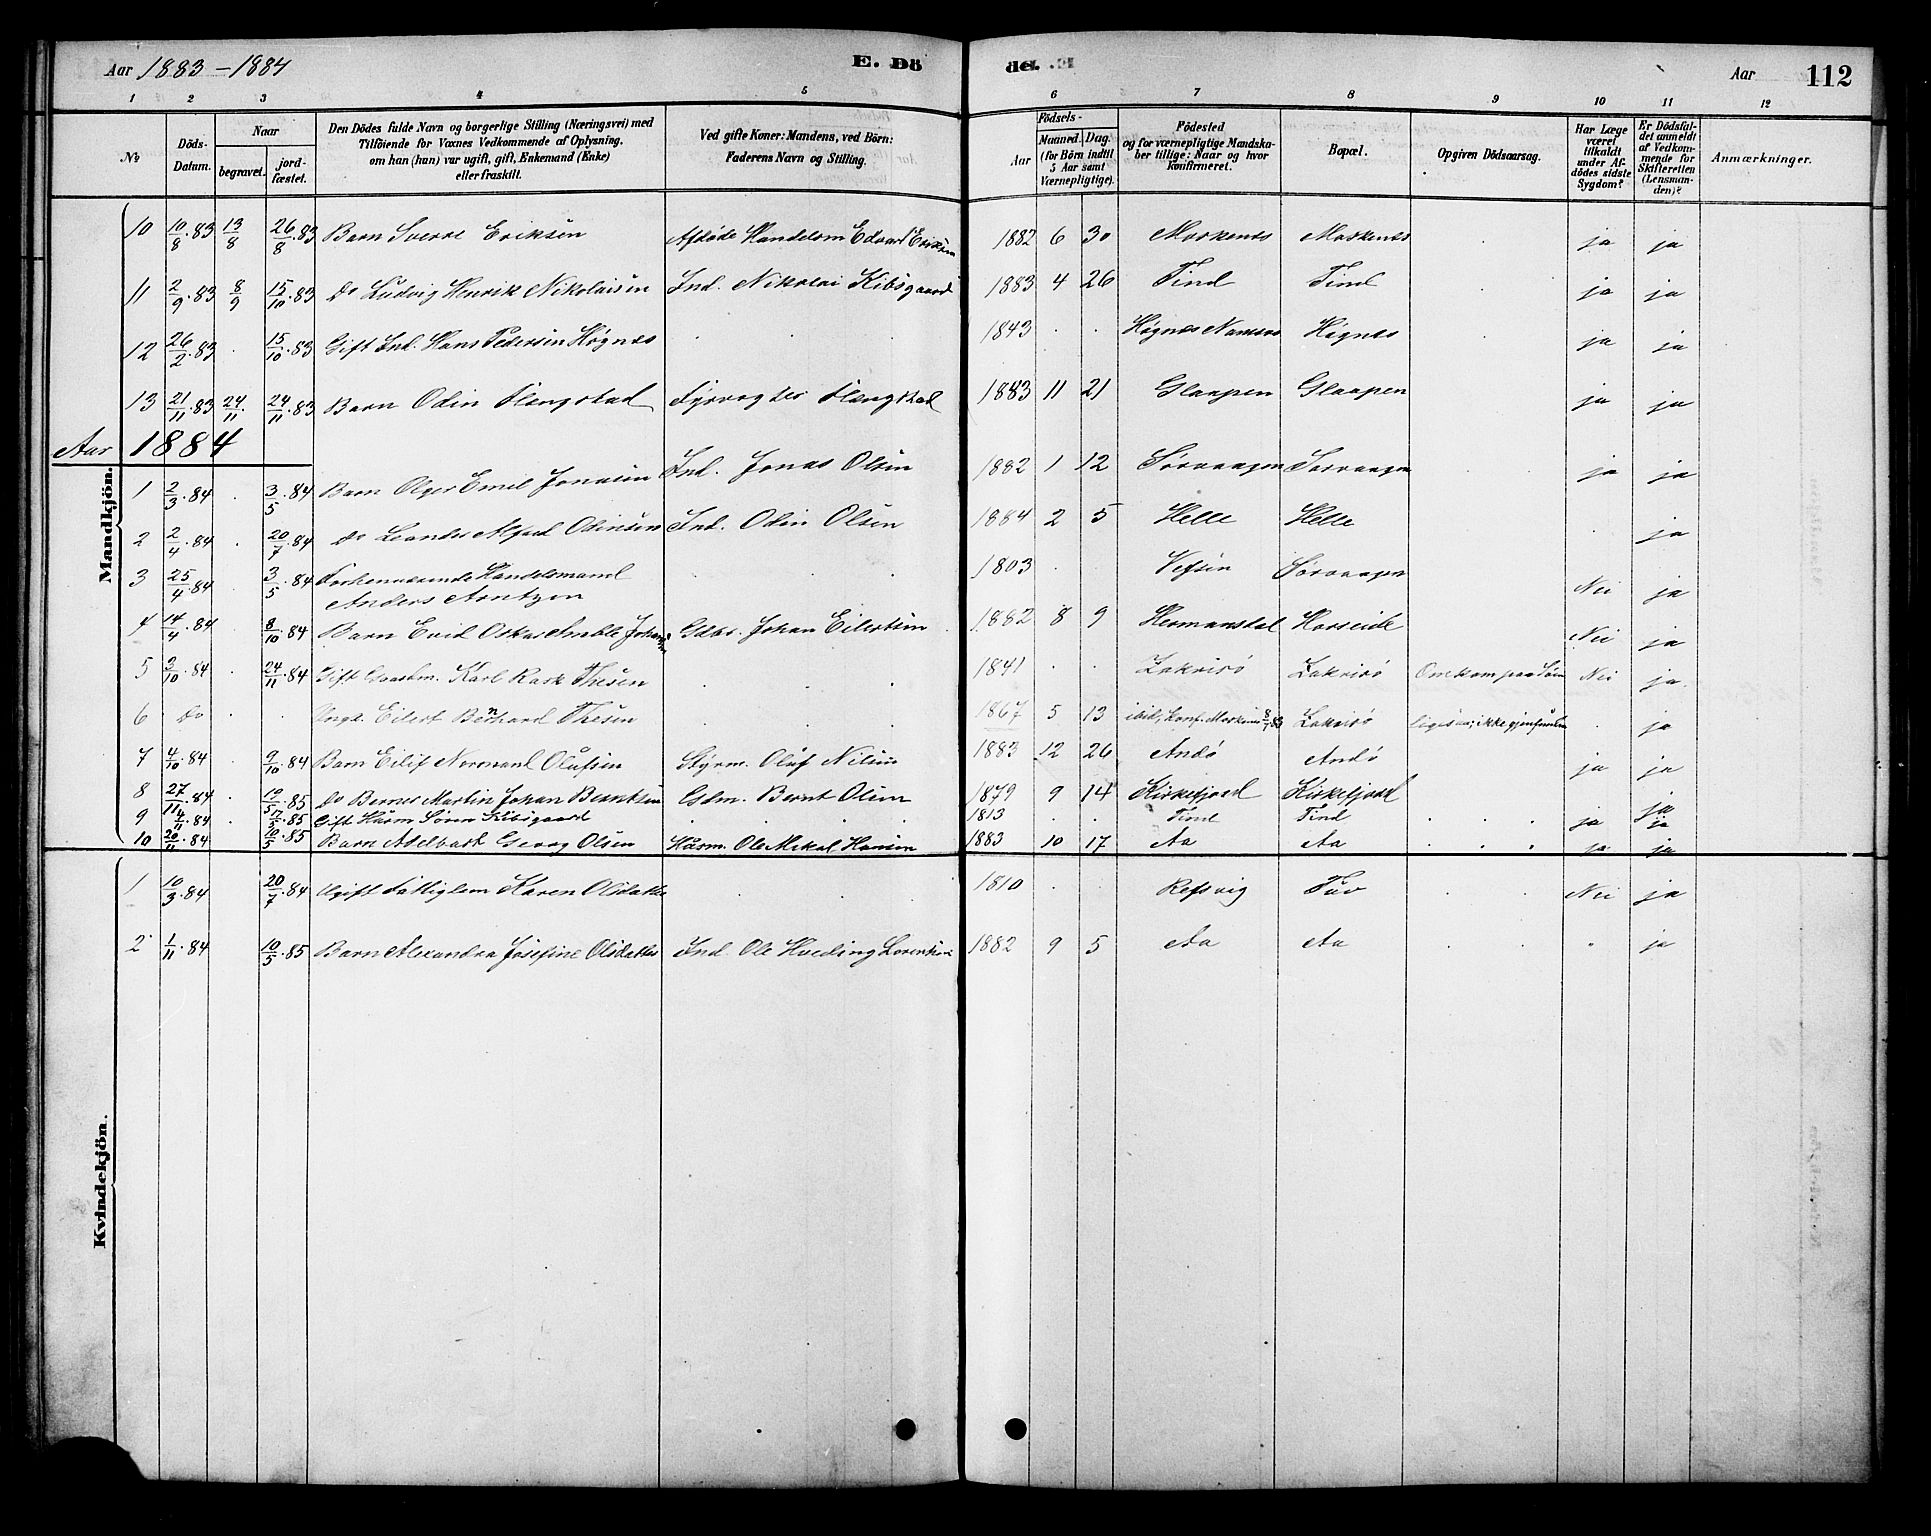 Aar 1883-1884 E. Dö
de. Aar 112
1 2 3 4 5 6 7 8 9 10 11 12
No Döds-Datum. Naar begravet. jord-fæstet.
Den Dödes fulde Navn og borgerlige Stilling (Næringsvei) med
Tilföiende for Voxnes Vedkommende af Oplysning,
om han (hun) var ugift, gift, Enkemand (Enke)
eller fraskilt.
Ved gifte Koner: Mandens, ved Börn:
Faderens Navn og Stilling.
Födsels-
Aar Maaned. Dag.
(for Börn indtil
5 Aar samt
Værnepligtige).
Födested
og for værnepligtige Mandska-
ber tillige: Naar og hvor
konfirmeret.
Bopæl.
Opgiven Dödsaarsag.
Har Læge
været
tilkaldt
under Af-
dödes sidste
Sygdom?
Er Dödsfal-
det anmeldt
af Vedkom-
mende for
Skifteretten
(Lensman-
den)?
Anmærkninger.
Mandkjön.
10 10/8.83 13/8 26/8.83 Barn Sverre Eriksen Afdöde Handelsm Edvard Eriksen 1882 6 30 Moskenes Moskenes ja ja
11 2/9.83 8/9 15/10.83 Do Ludvig Henrik Nikolaisen Ind. Nikolai Kibsgaard 1883 4 26 Tind Tind ja ja
12 26/2.83 15/10.83 Gift Ind. Hans Pedersen Högnes 1843 Högnes Namsos Högnes ja ja
13 21/11.83 24/11. 24/11.83 Barn Odin Flengstad Fyrvogter Flengstad 1883 11 21 Glaapen Glaapen ja ja
Aar 1884
1 2/3.84 3/5.84 Barn Olger Emil Jonasen Ind. Jonas Olsen 1882 1 12 Sörvaagen Sorvaagen ja ja
2 2/4.84 20/7.84 Do Leander Alfred Odinsen Ind. Odin Olsen 1884 2 5 Helle Helle ja
3 25/4.84 3/5.84 Forhenværende Handelsmand
Anders Arntzen 1803 Vefsen Sörvaagen Nei ja
4 14/4.84 8/10.84 Barn Oskar Johansen Gdbr. Johan Eilertsen 1882 8 9 Hermansdal Horseide Nei ja
5 3/10.84 24/11.84 Gift Gaardm. Karl Rask Thesen 1841 Zakrisö Zakrisö Omkom paa Söen Nei ja
6 Do Ungk. Eilert Bernhard Thesen 1867 5 13 ibid, Konf. Moskenes 8/7.83 Zakrisö ligesaa; ikke gjenfunden ja
7 4/10.84 9/10.84 Barn Eilif Normand Olufsen Styrm. Oluf Nilsen 1883 12 26 Andö Andö ja ja
8 27/11.84 19/5.85 Do Berner Martin Johan Berntsen Gdm. Bernt Olsen 1879 9 14 Kirkefjord Kirkefjord ja ja
9 4/11.84 17/5.85 Gift Husm Sören Kibsgaard 1813 Tind Tind ja ja
10 20/11.84 10/5.85 Barn Adelbart Georg Olsen Husm. Ole Mikal Hansen 1883 10 17 Aa Aa ja ja
Kvindekjön.
1 10/3.84 20/7.84 Ugift Fattiglem Karen Olsdatter 1810 Refsvig Tuv Nei ja
2 1/11.84 10/5.85 Barn Alexandra Josefine Olsdatter Ind. Ole Hveding Lorentsen 1882 9 5 Aa Aa " ja